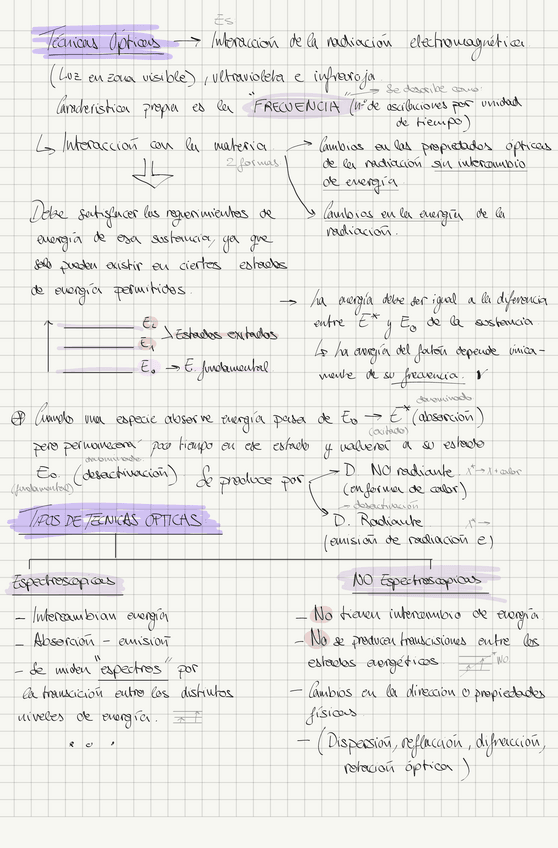 Es
Técnicas Ópticas → Interacción de la radiación electromagnética
(Luz en zona visible), ultravioleta e infrarroja
→ Se describe como
Característica propia es la "FRECUENCIA" (nº de oscilaciones por unidad
de tiempo)
↳ Interacción con la materia
2 formas
→ Cambios en las propiedades ópticas
de la radiación sin intercambio
de energía
→ Cambios en la energía de la
radiación.
Debe satisfacer los requerimientos de
energía de esa sustancia, ya que
solo pueden existir en ciertos estados
de energía permitidos.
E₂
E₁
Estados excitados
E₀ → E. fundamental
→ La energía debe ser igual a la diferencia
entre E* y E₀ de la sustancia
↳ La energía del fotón depende única-
mente de su frecuencia. r
denominado
Cuando una especie absorve energía pasa de E₀ → E* (absorción)
(excitado)
pero permanecerá poco tiempo en ese estado y volverá a su estado
denominado
E₀ (desactivación) Se produce por
(fundamental)
→ D. NO radiante
(en forma de calor)
desactivación
→ D. Radiante
(emisión de radiación e)
TIPOS DE TÉCNICAS OPTICAS
Espectroscopicas
- Intercambian energía
- Absorción - emisión
- Se miden "espectros" por
la transición entre los distintos
niveles de energía.
NO Espectroscopicas
- No tienen intercambio de energía
- No se producen transcisiones entre los
estados energéticos NO
- Cambios en la dirección o propiedades
físicas
- (Dispersión, reflacción, difracción,
rotación óptica)